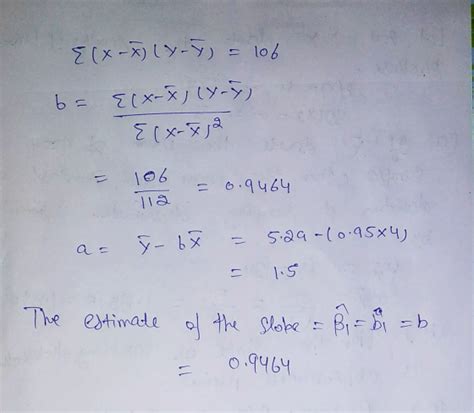 Σ(x-x̄)(y-ȳ) = 106
b = Σ(x-x̄)(y-ȳ) / Σ(x-x̄)²
= 106/112 = 0.9464
a = ȳ - bx̄ = 5.29-(0.95×4)
= 1.5
The estimate of the slobe = β̂₁ = b̂₁ = b
= 0.9464